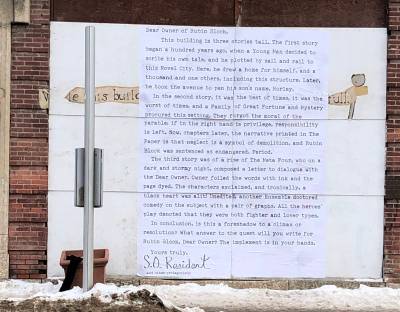 Dear Owner of Rubin Block,
This building is three stories tall. The first story
began a hundred years ago, when a Young Man decided to
scribe his own tale, and he plotted by sail and rail to
this Novel City. Here, he drew a home for himself, and a
thousand and one others, including this structure. Later,
he took the avenue to pen his son's name, Morley.
In the second story, it was the best of times, it was the
worst of times, and a Family of Great Fortune and Mystery
procured this setting. They forgot the moral of the
parable: if in the right hand is privilege, responsibility
is left. Now, chapters later, the narrative printed in The
Paper is that neglect is a symbol of demolition, and Rubin
Block was sentenced as endangered. Period.
The third story was of a rise of The Meta Four, who on a
dark and stormy night, composed a letter to dialogue with
the Dear Owner. Owner foiled the words with ink and the
page dyed. The characters exclaimed, and ironically, a
black heart was alit! Meanwhile, another Ensemble authored
comedy on the subject with a pair of graphs. All the heroes
play denoted that they were both fighter and lover types.
In conclusion, is this a foreshadow to a climax or
resolution? What answer to the quest will you write for
Rubin Block, Dear Owner? The implement is in your hands.
Yours truly,
S.O. Resident
this buil
full